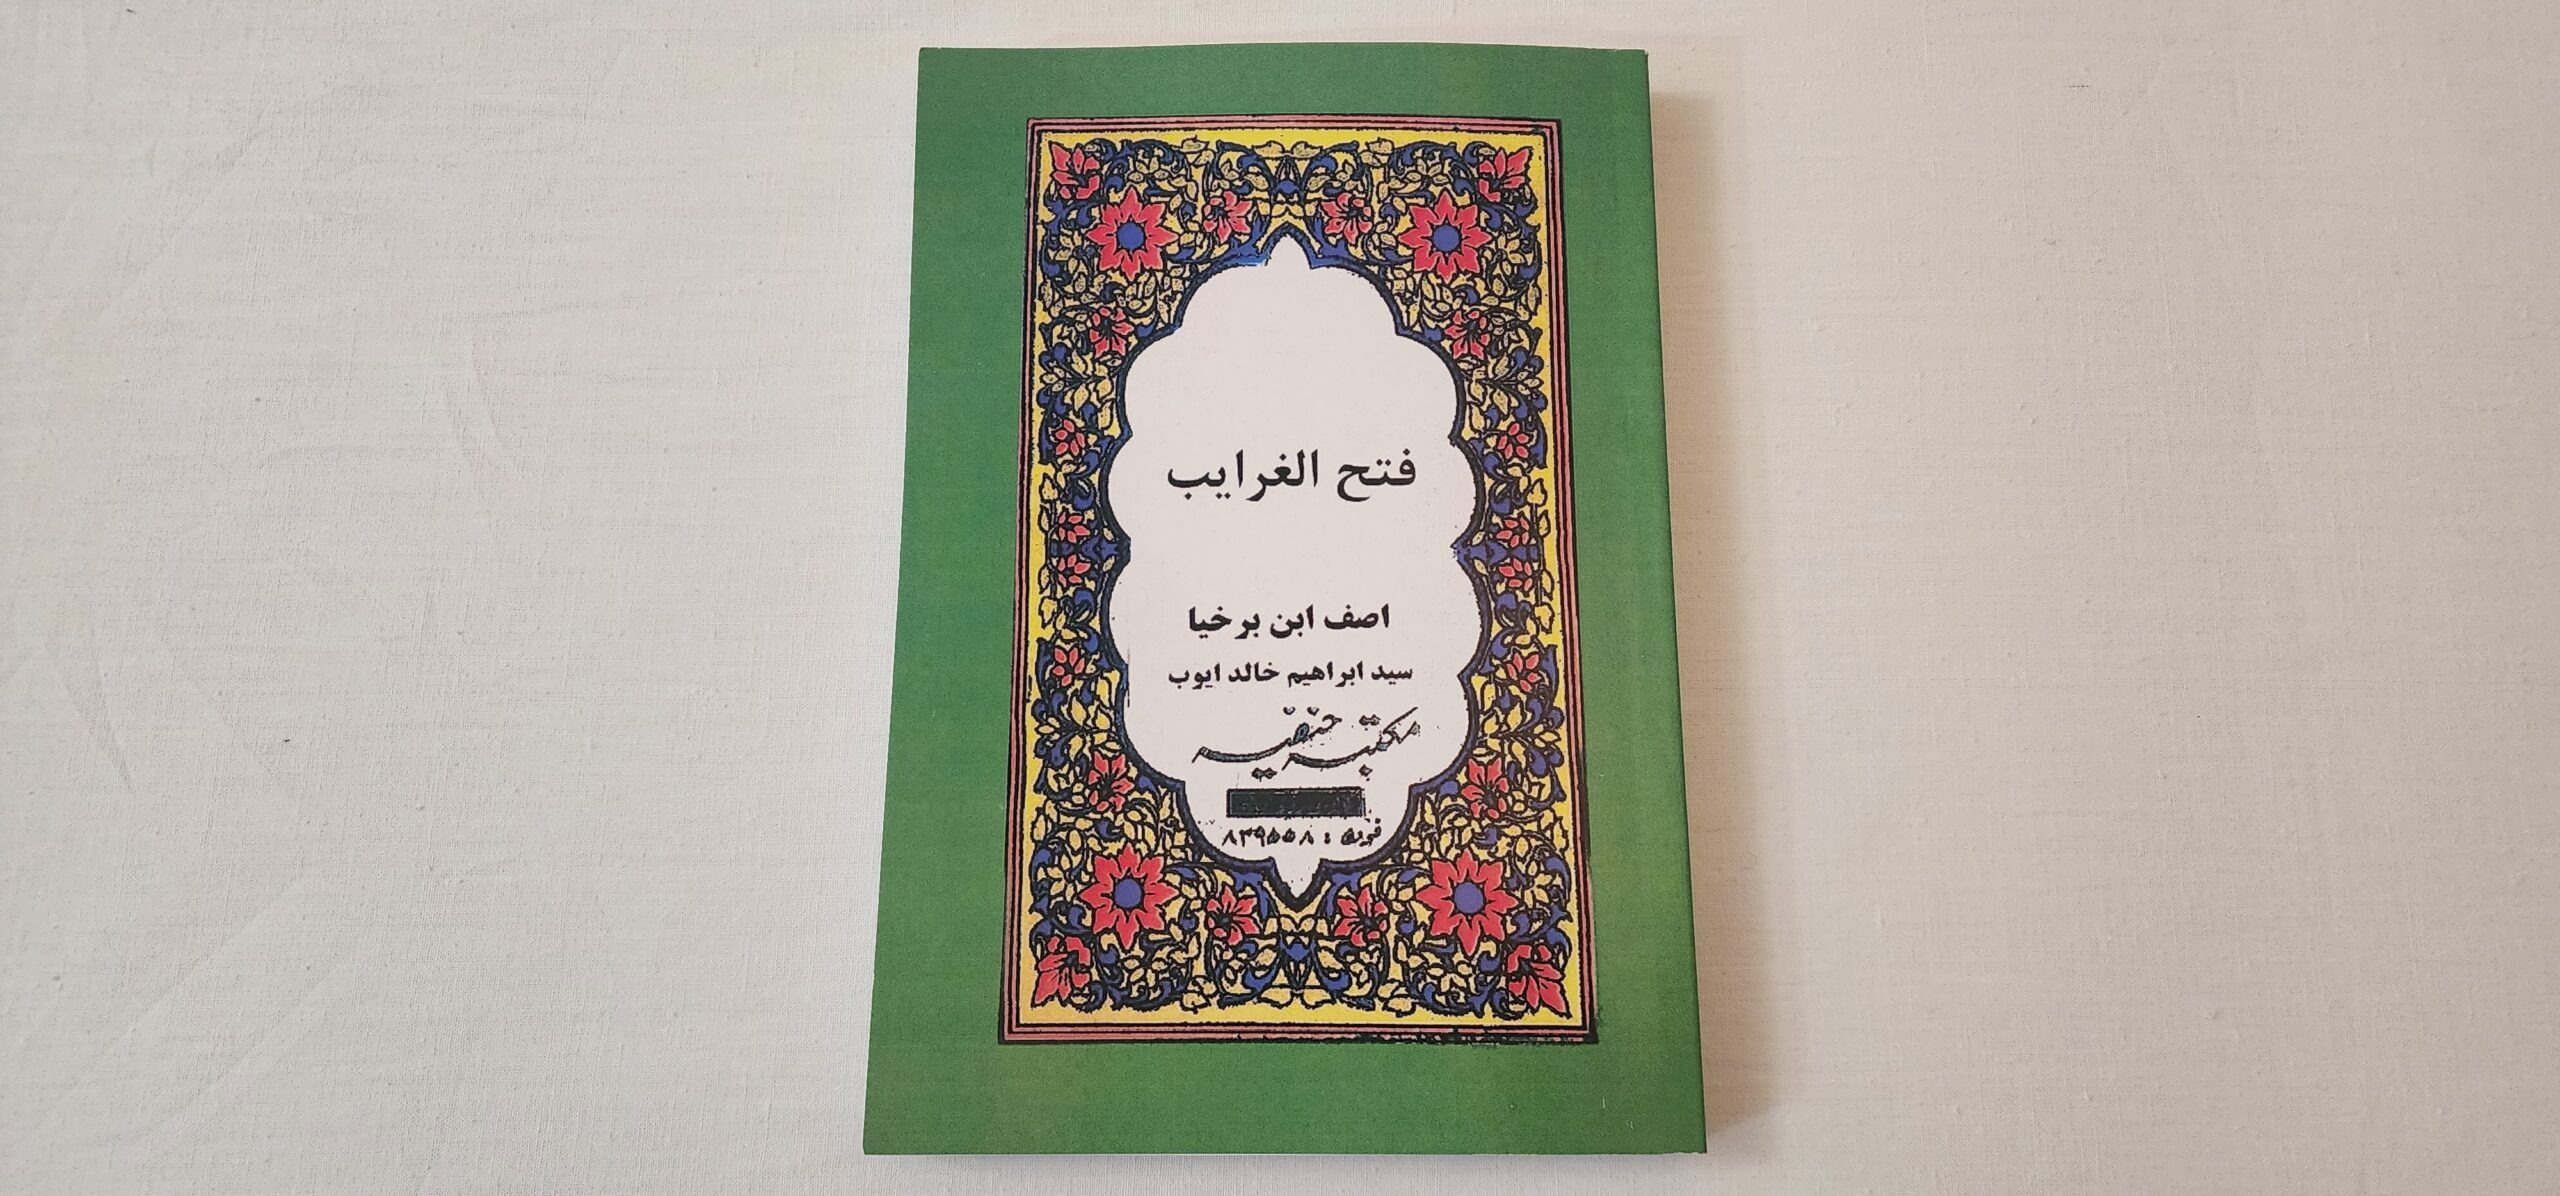 فتح الغرایب
اصف ابن برخیا
سید ابراهیم خالد ایوب
مکتبہ حنفیہ
فون : ۸۳۹۵۵۸